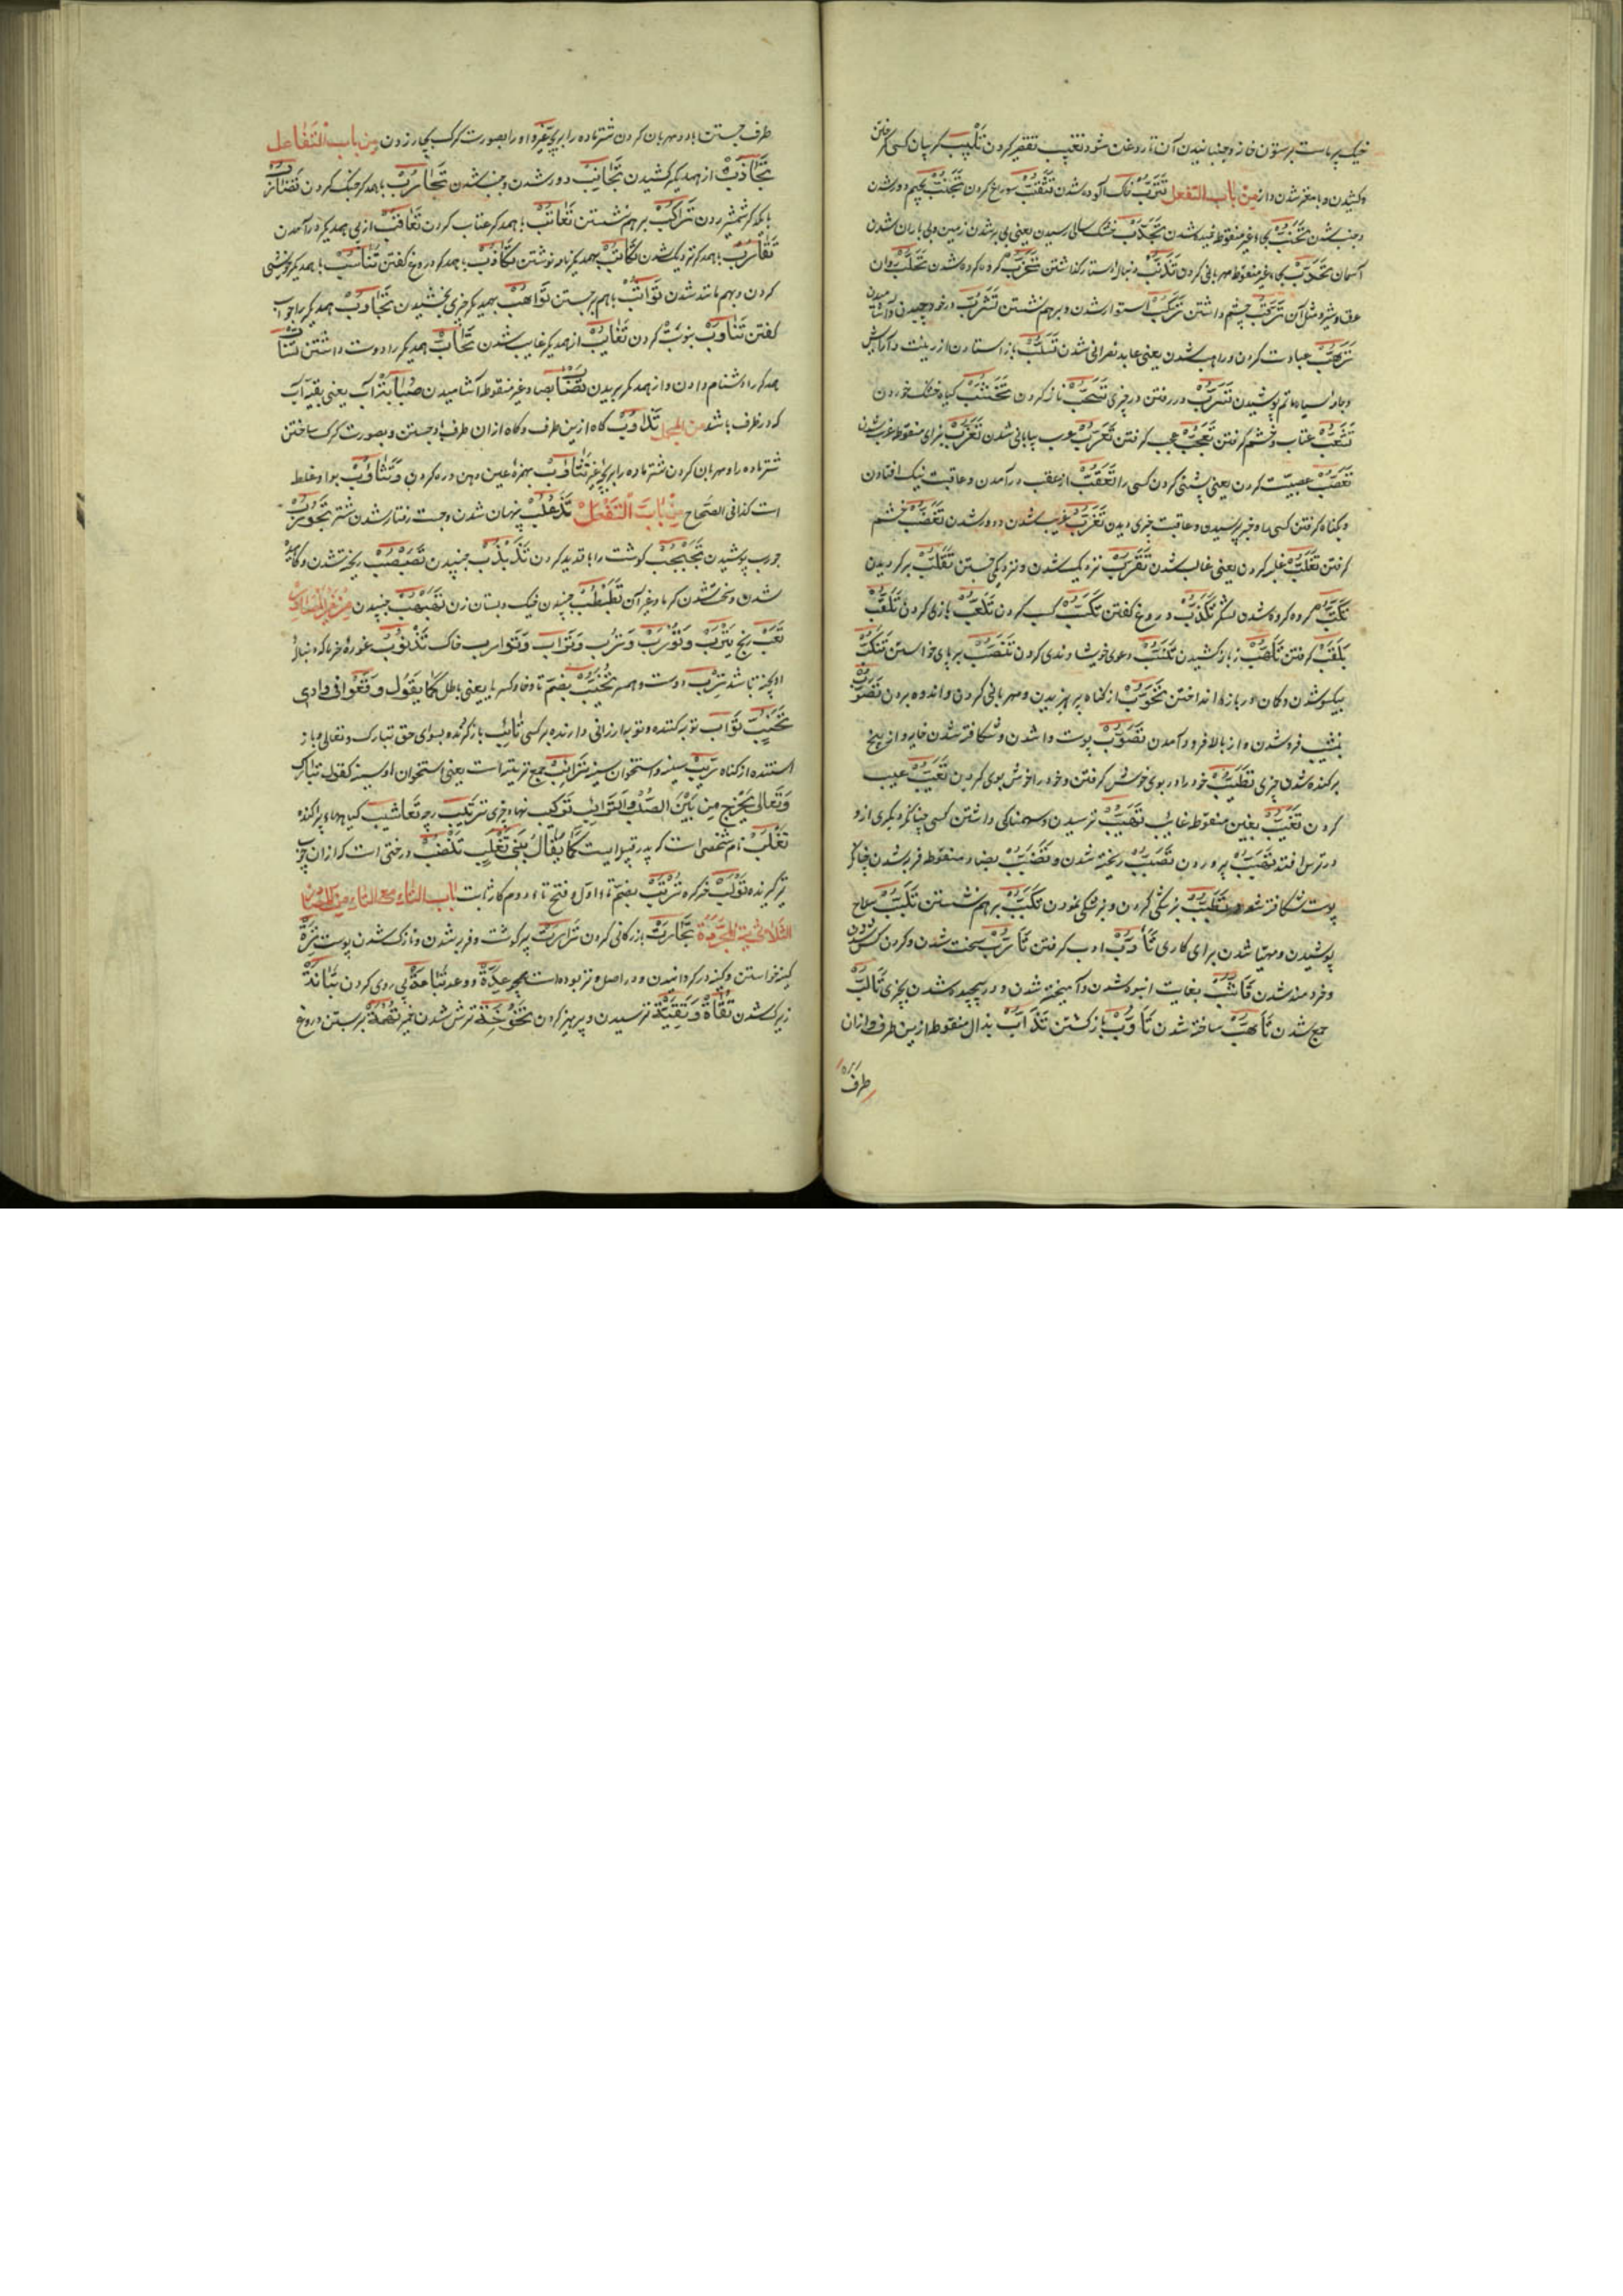 خیک پر ماست بر ستون خانه و جنبانیدن آن تا روغن شود تقعیب تقعیر کردن تلبیب کریبان کسی کرفتن
و کشیدن و با مغز شدن دانه من باب التفعل تترب خاک آلوده شدن تثقب سوراخ کردن تجنب بجیم دور شدن
و جنب شدن تحنب بحاء غیر منقوطه خمیده شدن تجدب خشک سالی رسیدن یعنی بی بر شدن زمین و بی باران شدن
آسمان تحدب بحاء غیر منقوطه مهربانی کردن تذنب دنباله دستار کذاشتن تحزب کروه کروه شدن تحلب روان
عرق و شیر و مثل آن ترقب چشم داشتن ترکب استوار شدن و بر هم نشستن تشرب در خود چیدن و آشامیدن
ترهب عبادت کردن و راهب شدن یعنی عابد نصرانی شدن تسلب باز استادن از زینت و آرایش
و جامه سیاه ماتم پوشیدن تسرب در رفتن در چیزی تسحب ناز کردن تخشب کیاه خشک خوردن
تعتب عتاب و خشم کرفتن تعجب عجب کرفتن تعرب عرب بیابانی شدن تعزب بزای منقوطه عزب شدن
تعصب عصبیت کردن یعنی پشتی کردن کسی را تعقب از عقب در آمدن و عاقبت نیک افتادن
و بکناه کرفتن کسی را و خبر پرسیدن و عاقبت چیزی دیدن تغرب غریب شدن و دور شدن تغضب خشم
کرفتن تغلب غلبه کردن یعنی غالب شدن تقرب نزدیک شدن و نزدیکی جستن تقلب بر کردیدن
تکتب کروه کروه شدن لشکر تکذب دروغ کفتن تکسب کسب کردن تلعب بازی کردن تلقب
بلقب کرفتن تلهب زبانه کشیدن تنسب دعوی خویشاوندی کردن تنصب بر پای خواستن تنکب
بیکسو شدن و کمان در بازو انداختن تحوب از کناه پرهیزیدن و مهربانی کردن و اندوه بردن تصوب
نشیب فرو شدن و از بالا فرود آمدن تقوب پوست وا شدن و شکافته شدن خایه و از بیخ
برکنده شدن چیزی تطیب خود را در بوی خوش کرفتن و خود را خوش بوی کردن تعیب عیب
کردن تغیب بغین منقوطه غایب تهیب ترسیدن و سهمناکی داشتن کسی چنانکه دیکری از و
در ترس افتد تصبب پروردن تصبب ریخته شدن و تضبب بضاد منقوطه فربه شدن چنانکه
پوست شکافته شود تطبب پزشکی کردن و پزشکی نمودن تکبب بر هم نشستن تلبب سلاح
پوشیدن و مهیا شدن برای کاری تأدب ادب کرفتن تأرب سخت شدن
و خردمند شدن تأشب بغایت انبوه شدن و آمیخته شدن و در پیچیده شدن بچیزی تألب
جمع شدن تأهب ساخته شدن تأوب باز کشتن تذأب بذال منقوطه ازین طرف و ازان
طرف
طرف جستن باد و مهربان کردن شتر ماده را ببچه غیر و او را بصورت کرک بچه زدن من باب التفاعل
تجاذب از همدیکر کشیدن تجانب دور شدن و جنب شدن تحارب با همدیکر جنک کردن تضارب
با یکدیکر شمشیر زدن تراکب بر هم نشستن تعاتب با همدیکر عتاب کردن تعاقب از پی همدیکر در آمدن
تقارب با همدیکر نزدیک شدن تکاتب بهمدیکر نامه نوشتن تکاذب با همدیکر دروغ کفتن تناسب با همدیکر خویشی
کردن و بهم مانند شدن تواثب با هم بر جستن تواهب بهمدیکر چیزی بخشیدن تجاوب همدیکر را جواب
کفتن تناوب بنوبت کردن تغایب از همدیکر غایب شدن تحاب همدیکر را دوست داشتن تساب
همدیکر را دشنام دادن و از همدیکر بریدن تصاب بصاد غیر منقوطه آشامیدن صبابه آب یعنی بقیه آب
که در ظرف باشد من المجمل تذاؤب کاه ازین طرف و کاه ازان طرف باد جستن و بصورت کرک ساختن
شتر ماده را و مهربان کردن شتر ماده را ببچه غیر تثاؤب بهمزه عین دهن دره کردن و تثاوب بواو غلط
است کذا فی الصحاح من باب التفعلل تذعلب پنهان شدن و جست رفتار شدن شتر تجورب
جورب پوشیدن تجبجب کوشت را با قدید کردن تذبذب جنبیدن تصبصب ریخته شدن
شدن و سخت شدن کرما و غیر آن تطبطب جنبیدن خیک و پستان زن تقبقب جنبیدن من غیر المصادر
تعب رنج تیرب و تورب و ترب و تراب و توارب خاک تذنوب غوره خرما که دنباله
او پخته باشد ترب دوست و همسر تخیب بضم تا و خا و کسر یا یعنی باطل کما یقول وقعوا فی وادی
تخیب تواب توبه کننده و توبه ارزانی دارنده بر کسی تائب باز کردنده بسوی حق تبارک و تعالی و باز
ایستنده از کناه تریب سینه و استخوان سینه ترائب جمع تریبه است یعنی استخوان او سینه کقوله تبارک
وتعالی یخرج من بین الصلب والترائب ترکیب نهاد چیزی تراکیب جمع تعاشیب کیاههای پراکنده
تغلب نام شخصی است که پدر قبیله ایست کما یقال بنی تغلب تنضب درختی است که ازان چوب
تیر کیرنده تولب خر کره ترتب بضم تاء اول و فتح تاء دوم کار ثابت باب التاء مع التاء من المصادر
الثلاثی المجردة تجارت بازرکانی کردن ترارت پر کوشت و فربه شدن و نازک شدن پوست ترة
کینه خواستن و کینه در کردانیدن و در اصل وتر بوده است چو عدة و وعد تباعة پی روی کردن تبانة
زیرک شدن تقاة و تقیة ترسیدن و پرهیز کردن تخوخة ترش شدن خمیر تهمة بر بستن دروغ